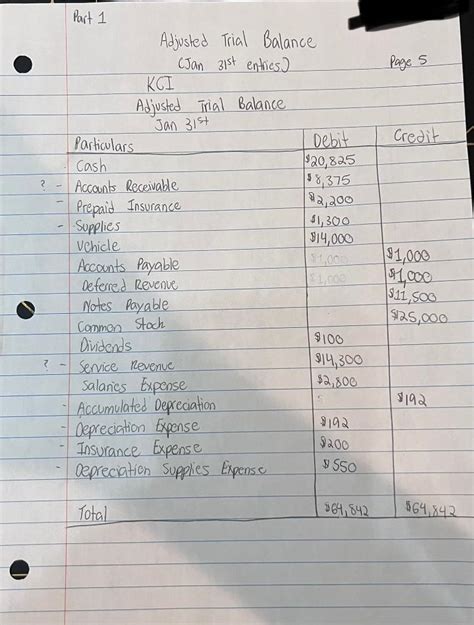 Part 1
Adjusted Trial Balance
(Jan 31st entries)
Page 5
KCI
Adjusted Trial Balance
Jan 31st
Particulars Debit Credit
Cash $20,825
? - Accounts Receivable $8,375
- Prepaid Insurance $2,200
- Supplies $1,300
Vehicle $14,000
Accounts Payable $1,000 $1,000
Deferred Revenue $1,000 $1,000
Notes Payable $11,500
Common Stock $25,000
Dividends $100
? - Service Revenue $14,300
Salaries Expense $2,800
- Accumulated Depreciation $192
- Depreciation Expense $192
- Insurance Expense $200
- Depreciation Supplies Expense $550
Total $64,842 $64,842